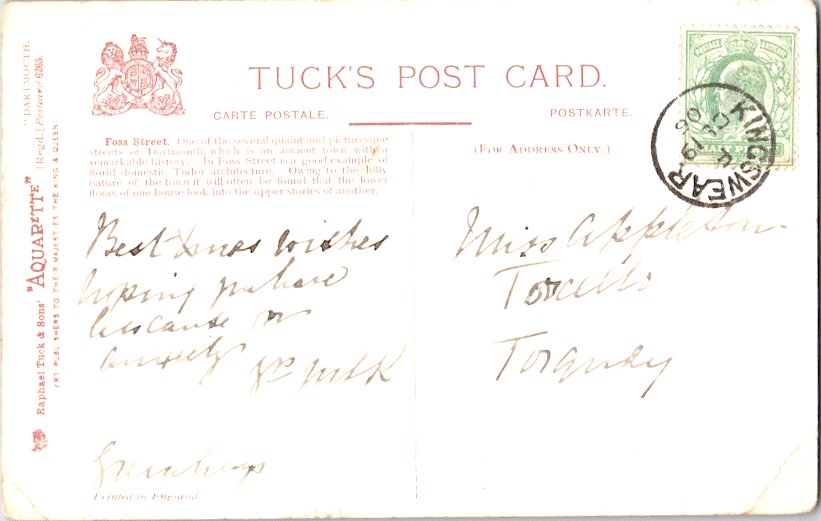 TUCK'S POST CARD.
CARTE POSTALE.
POSTKARTE.
(FOR ADDRESS ONLY.)
"DARTMOUTH.
[Regd.] Postcard 6265.
Raphael Tuck & Sons' "AQUARETTE"
ART PUBLISHERS TO THEIR MAJESTIES THE KING & QUEEN.
Foss Street. One of the several quaint and picturesque
streets of Dartmouth, which is an ancient town with a
remarkable history. In Foss Street is a good example of
florid domestic Tudor architecture. Owing to the hilly
nature of the town it will often be found that the lower
floors of one house look into the upper stories of another.
Best Xmas wishes
hoping you have
less cause for
anxiety
Printed in England.
POSTAGE REVENUE
HALF PENNY
KINGSWEAR
DE 19
06
Miss Appleton
Torcello
Torquay